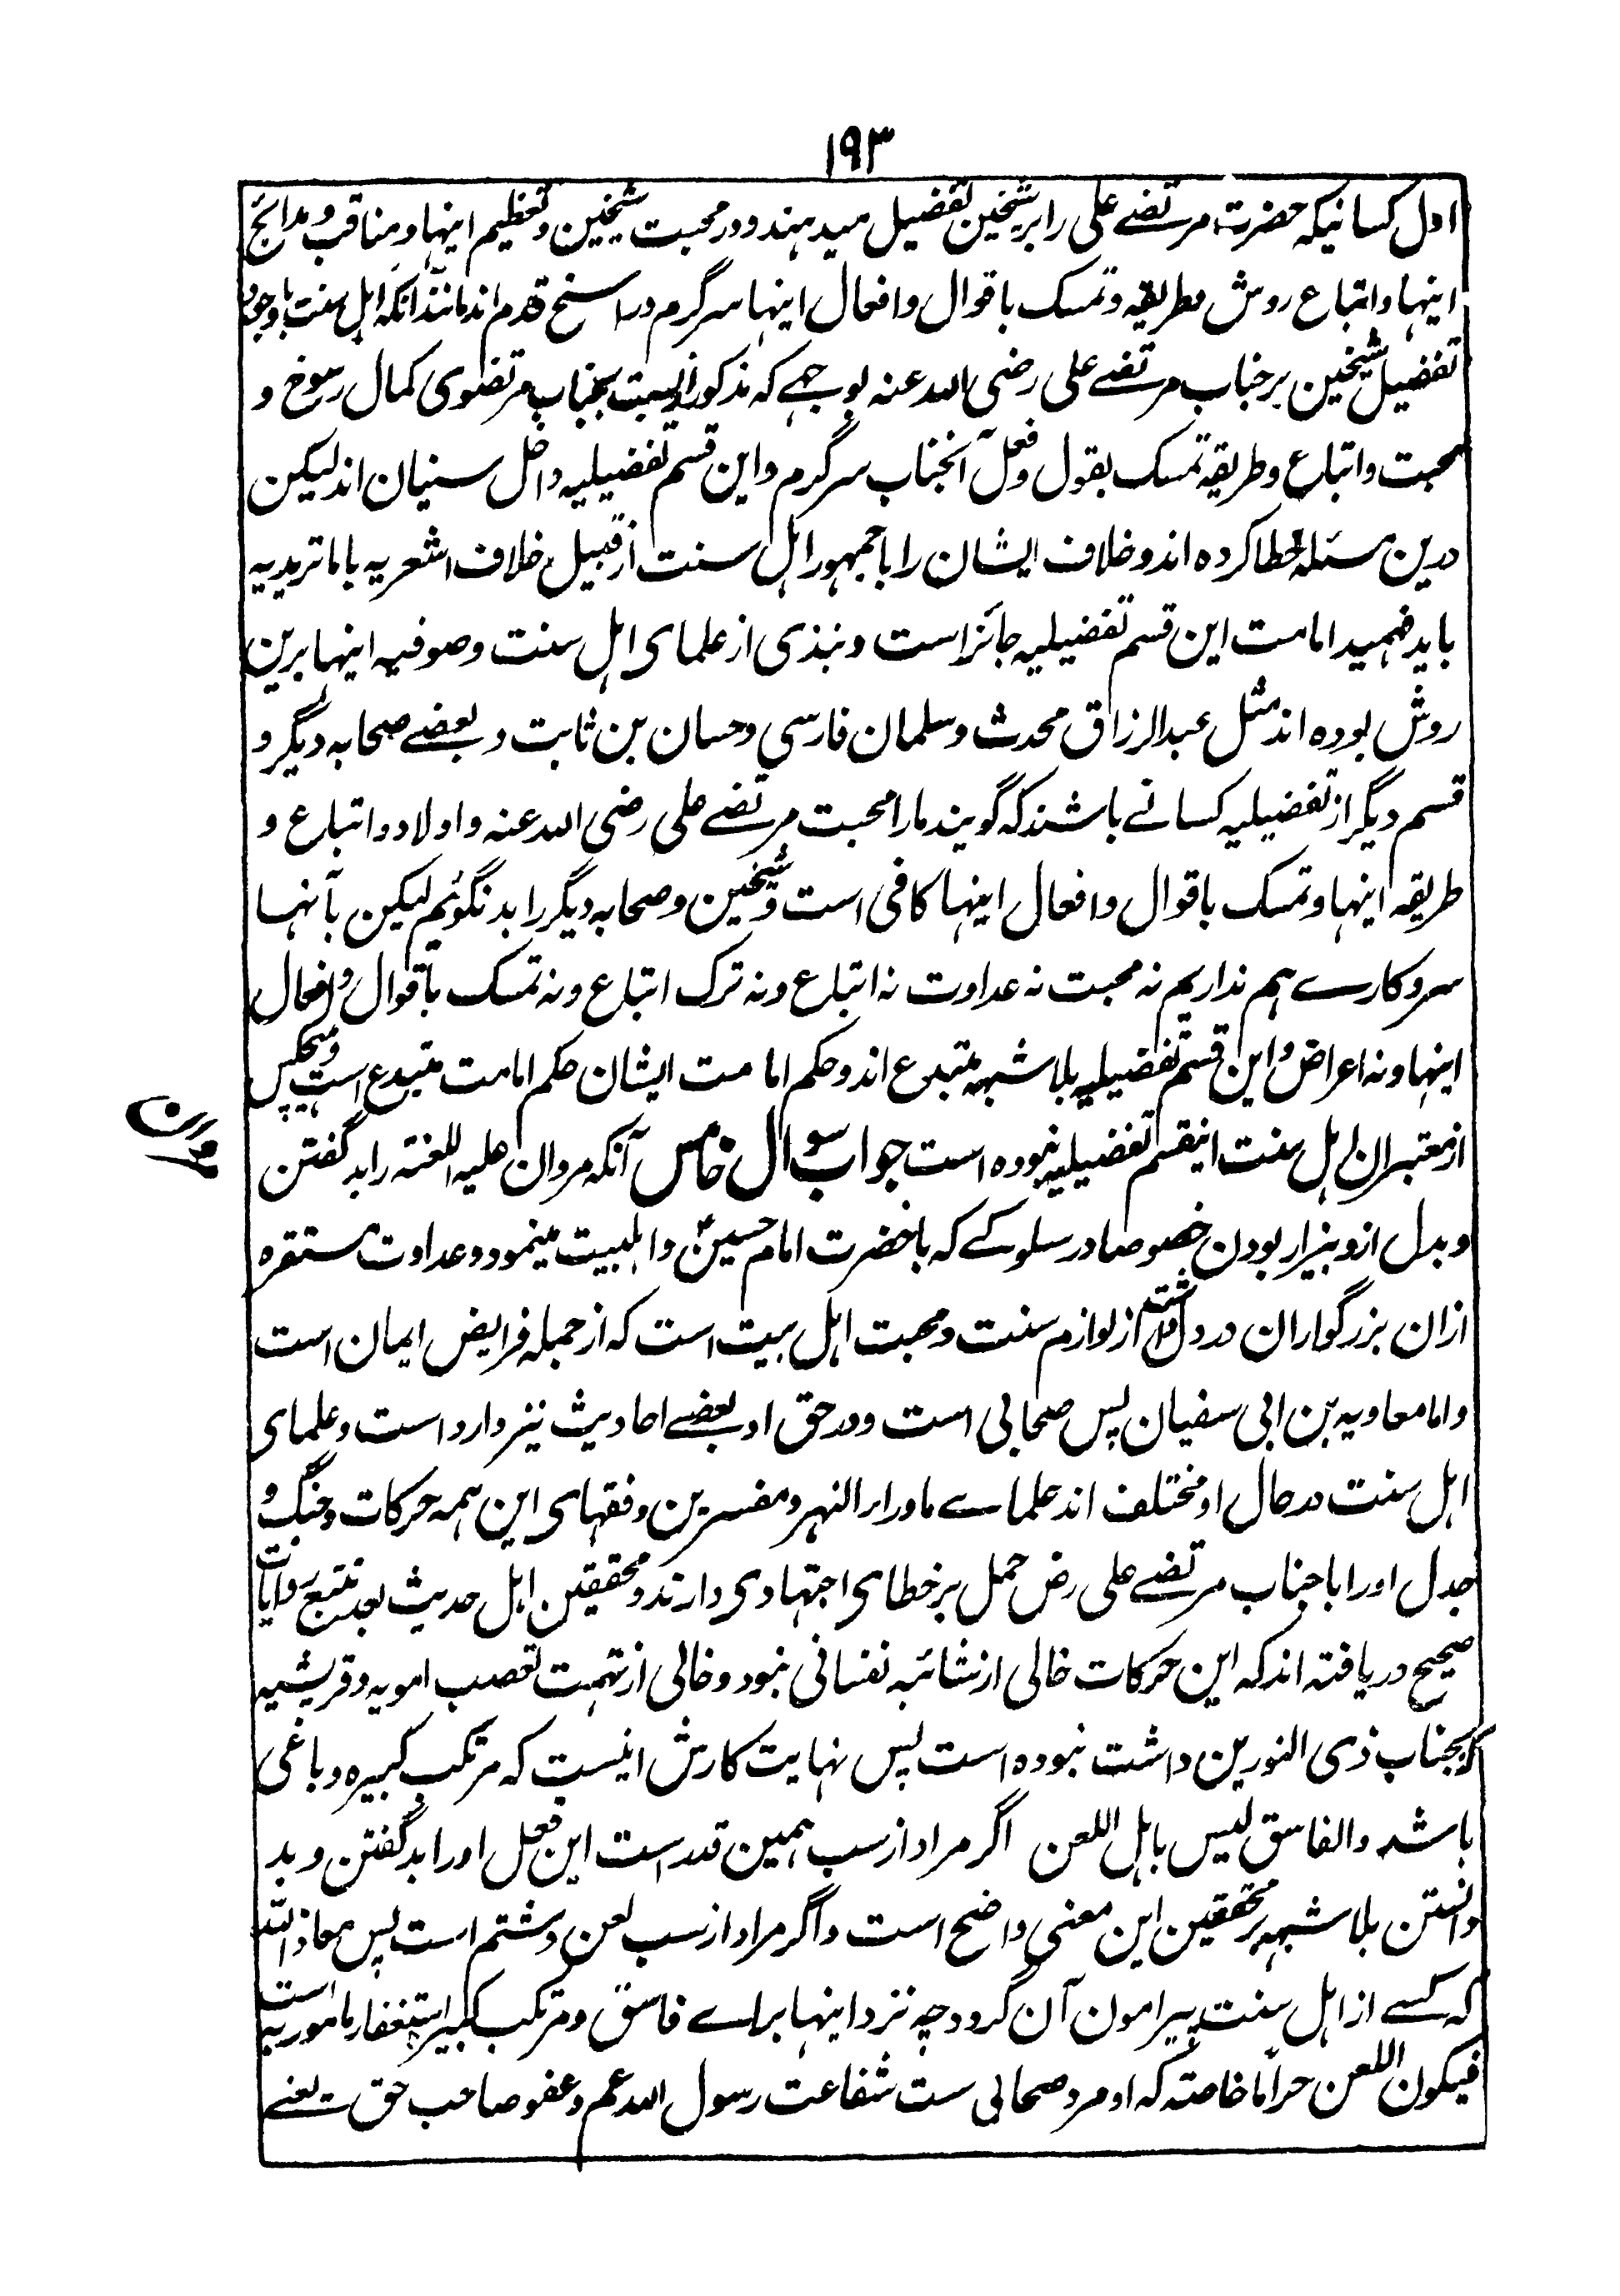 ۱۹۳
اول کسانیکه حضرت مرتضے علی را بر شیخین تفضیل میدهند و در محبت شیخین و تعظیم اینها و مناقب و مدائح
اینها و اتباع روش و طریقه و تمسک باقوال و افعال اینها سرگرم و راسخ قدم اند مانند آنکه اهل سنت باوجود
تفضیل شیخین بر جناب مرتضے علی رضی الله عنه بوجهے که مذکور شد نسبت بجناب مرتضوی کمال رسوخ و
محبت و اتباع و طریقه تمسک بقول و فعل آنجناب سرگرم و این قسم تفضیلیه داخل سنیان اند لیکن
درین مسئله خطا کرده اند و خلاف ایشان را با جمهور اهل سنت از قبیل خلاف اشعریه با ماتریدیه
باید فهمید امامت این قسم تفضیلیه جائز است و نبذی از علمای اهل سنت و صوفیه اینها برین
روش بوده اند مثل عبدالرزاق محدث و سلمان فارسی و حسان بن ثابت و بعضے صحابه دیگر و
قسم دیگر از تفضیلیه کسانے باشند که گویند مارا محبت مرتضے علی رضی الله عنه و اولاد و اتباع و
طریقه اینها و تمسک باقوال و افعال اینها کافی است و شیخین و صحابه دیگر را بد نگوئیم لیکن بآنها
سر و کارے هم نداریم نه محبت نه عداوت نه اتباع و نه ترک اتباع و نه تمسک باقوال و افعال
اینها و نه اعراض و این قسم تفضیلیه بلا شبهه مبتدع اند و حکم امامت ایشان حکم امامت مبتدع است و هیچکس
از معتبران اهل سنت اینقسم تفضیلیه نبوده است جواب سوال خامس آنکه مروان علیه اللعنة را بد گفتن
مروان
و بدل ازو بیزار بودن خصوصا در سلوکے که با حضرت امام حسین و اهلبیت مینمود و عداوت مستقره
ازان بزرگواران در دل داشتن از لوازم سنت و محبت اهل بیت است که از جمله فرایض ایمان است
و اما معاویه بن ابی سفیان پس صحابی است و در حق او بعضے احادیث نیز وارد است و علمای
اهل سنت در حال او مختلف اند علماے ماوراء النهر و مفسرین و فقهای این همه حرکات و جنگ و
جدل او را با جناب مرتضے علی رض حمل بر خطای اجتهادی دارند و محققین اهل حدیث بعد تتبع روایات
صحیح دریافته اند که این حرکات خالی از شائبه نفسانی نبود و خالی از تهمت تعصب امویه و قریشیه
که بجناب ذی النورین داشت نبوده است پس نهایت کارش اینست که مرتکب کبیره و باغی
باشد و الفاسق لیس باهل اللعن اگر مراد از سب همین قدر است این فعل او را بد گفتن و بد
دانستن بلا شبهه بر محققین این معنی واضح است و اگر مراد از سب لعن و شتم است پس معاذ الله
که کسے از اهل سنت پیرامون آن گردد چه نزد اینها براے فاسق و مرتکب کبیره استغفار مامور به است
فیکون اللعن حراما خاصته که او مرد صحابی ست شفاعت رسول الله عم و عفو صاحب حق یعنے